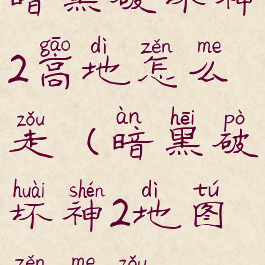 暗黑破坏神
gāo dì zěn me
2高地怎么
zǒu àn hēi pò
走(暗黑破
huài shén dì tú
坏神2地图
zěn me zǒu